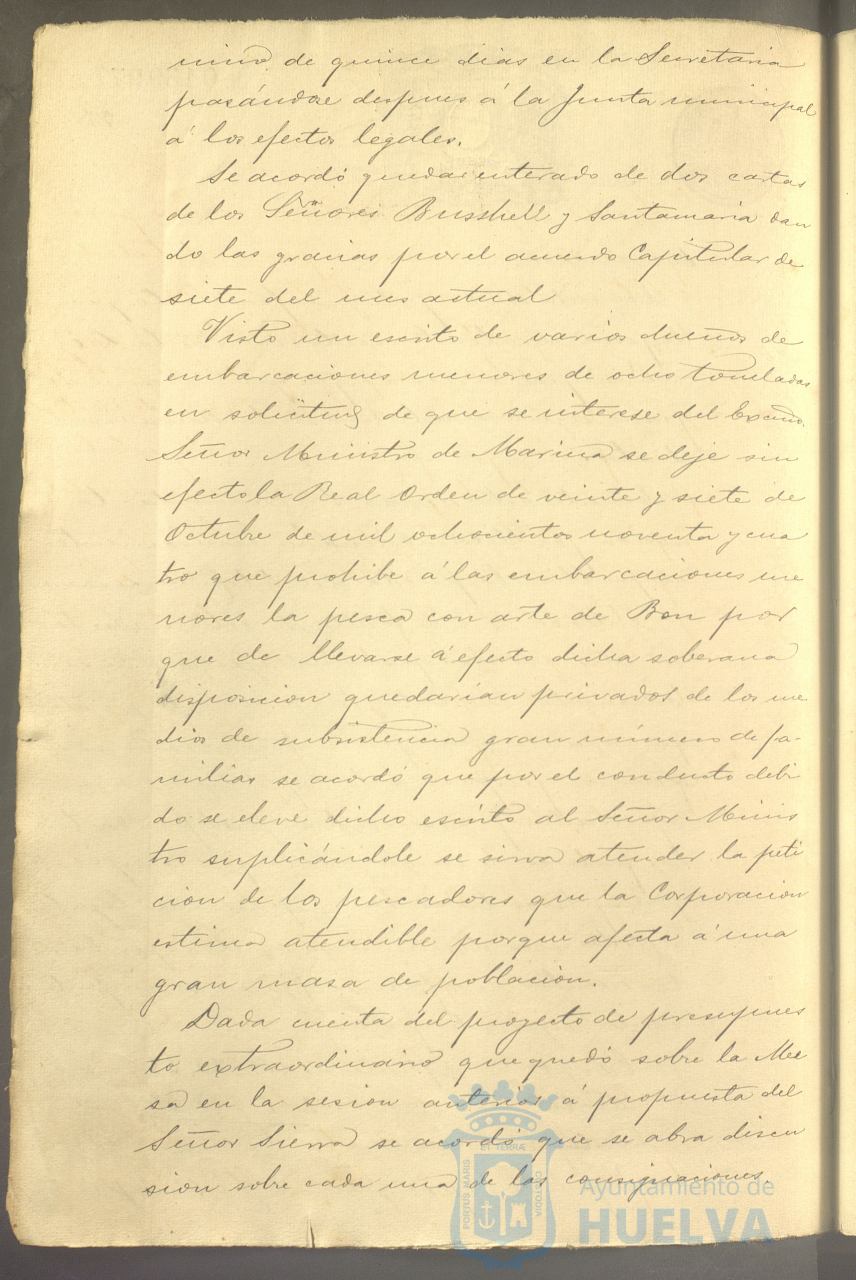 mino de quince dias en la Secretaria
pasándose despues á la Junta municipal
á los efectos legales.
Se acordó quedar enterado de dos cartas
de los Señores Busshell y Santamaria dan
do las gracias por el acuerdo Capitular de
siete del mes actual
Visto un escrito de varios dueños de
embarcaciones menores de ocho toneladas
en solicitud de que se interese del Excmo.
Señor Ministro de Marina se deje sin
efecto la Real Orden de veinte y siete de
Octubre de mil ochocientos noventa y cua
tro que prohibe á las embarcaciones me
nores la pesca con arte de Bou por
que de llevarse á efecto dicha soberana
disposicion quedarian privados de los me
dios de subsistencia gran número de fa-
milias se acordó que por el conducto debi
do se eleve dicho escrito al Señor Minis
tro suplicándole se sirva atender la peti
cion de los pescadores que la Corporacion
estima atendible porque afecta á una
gran masa de poblacion.
Dada cuenta del proyecto de presupues
to extraordinario que quedó sobre la Me
sa en la sesion anterior á propuesta del
Señor Sierra se acordó que se abra discu
sion sobre cada una de las consignaciones.
ET TERRÆ
PORTUS MARIS
CUSTODIA
Ayuntamiento de
HUELVA